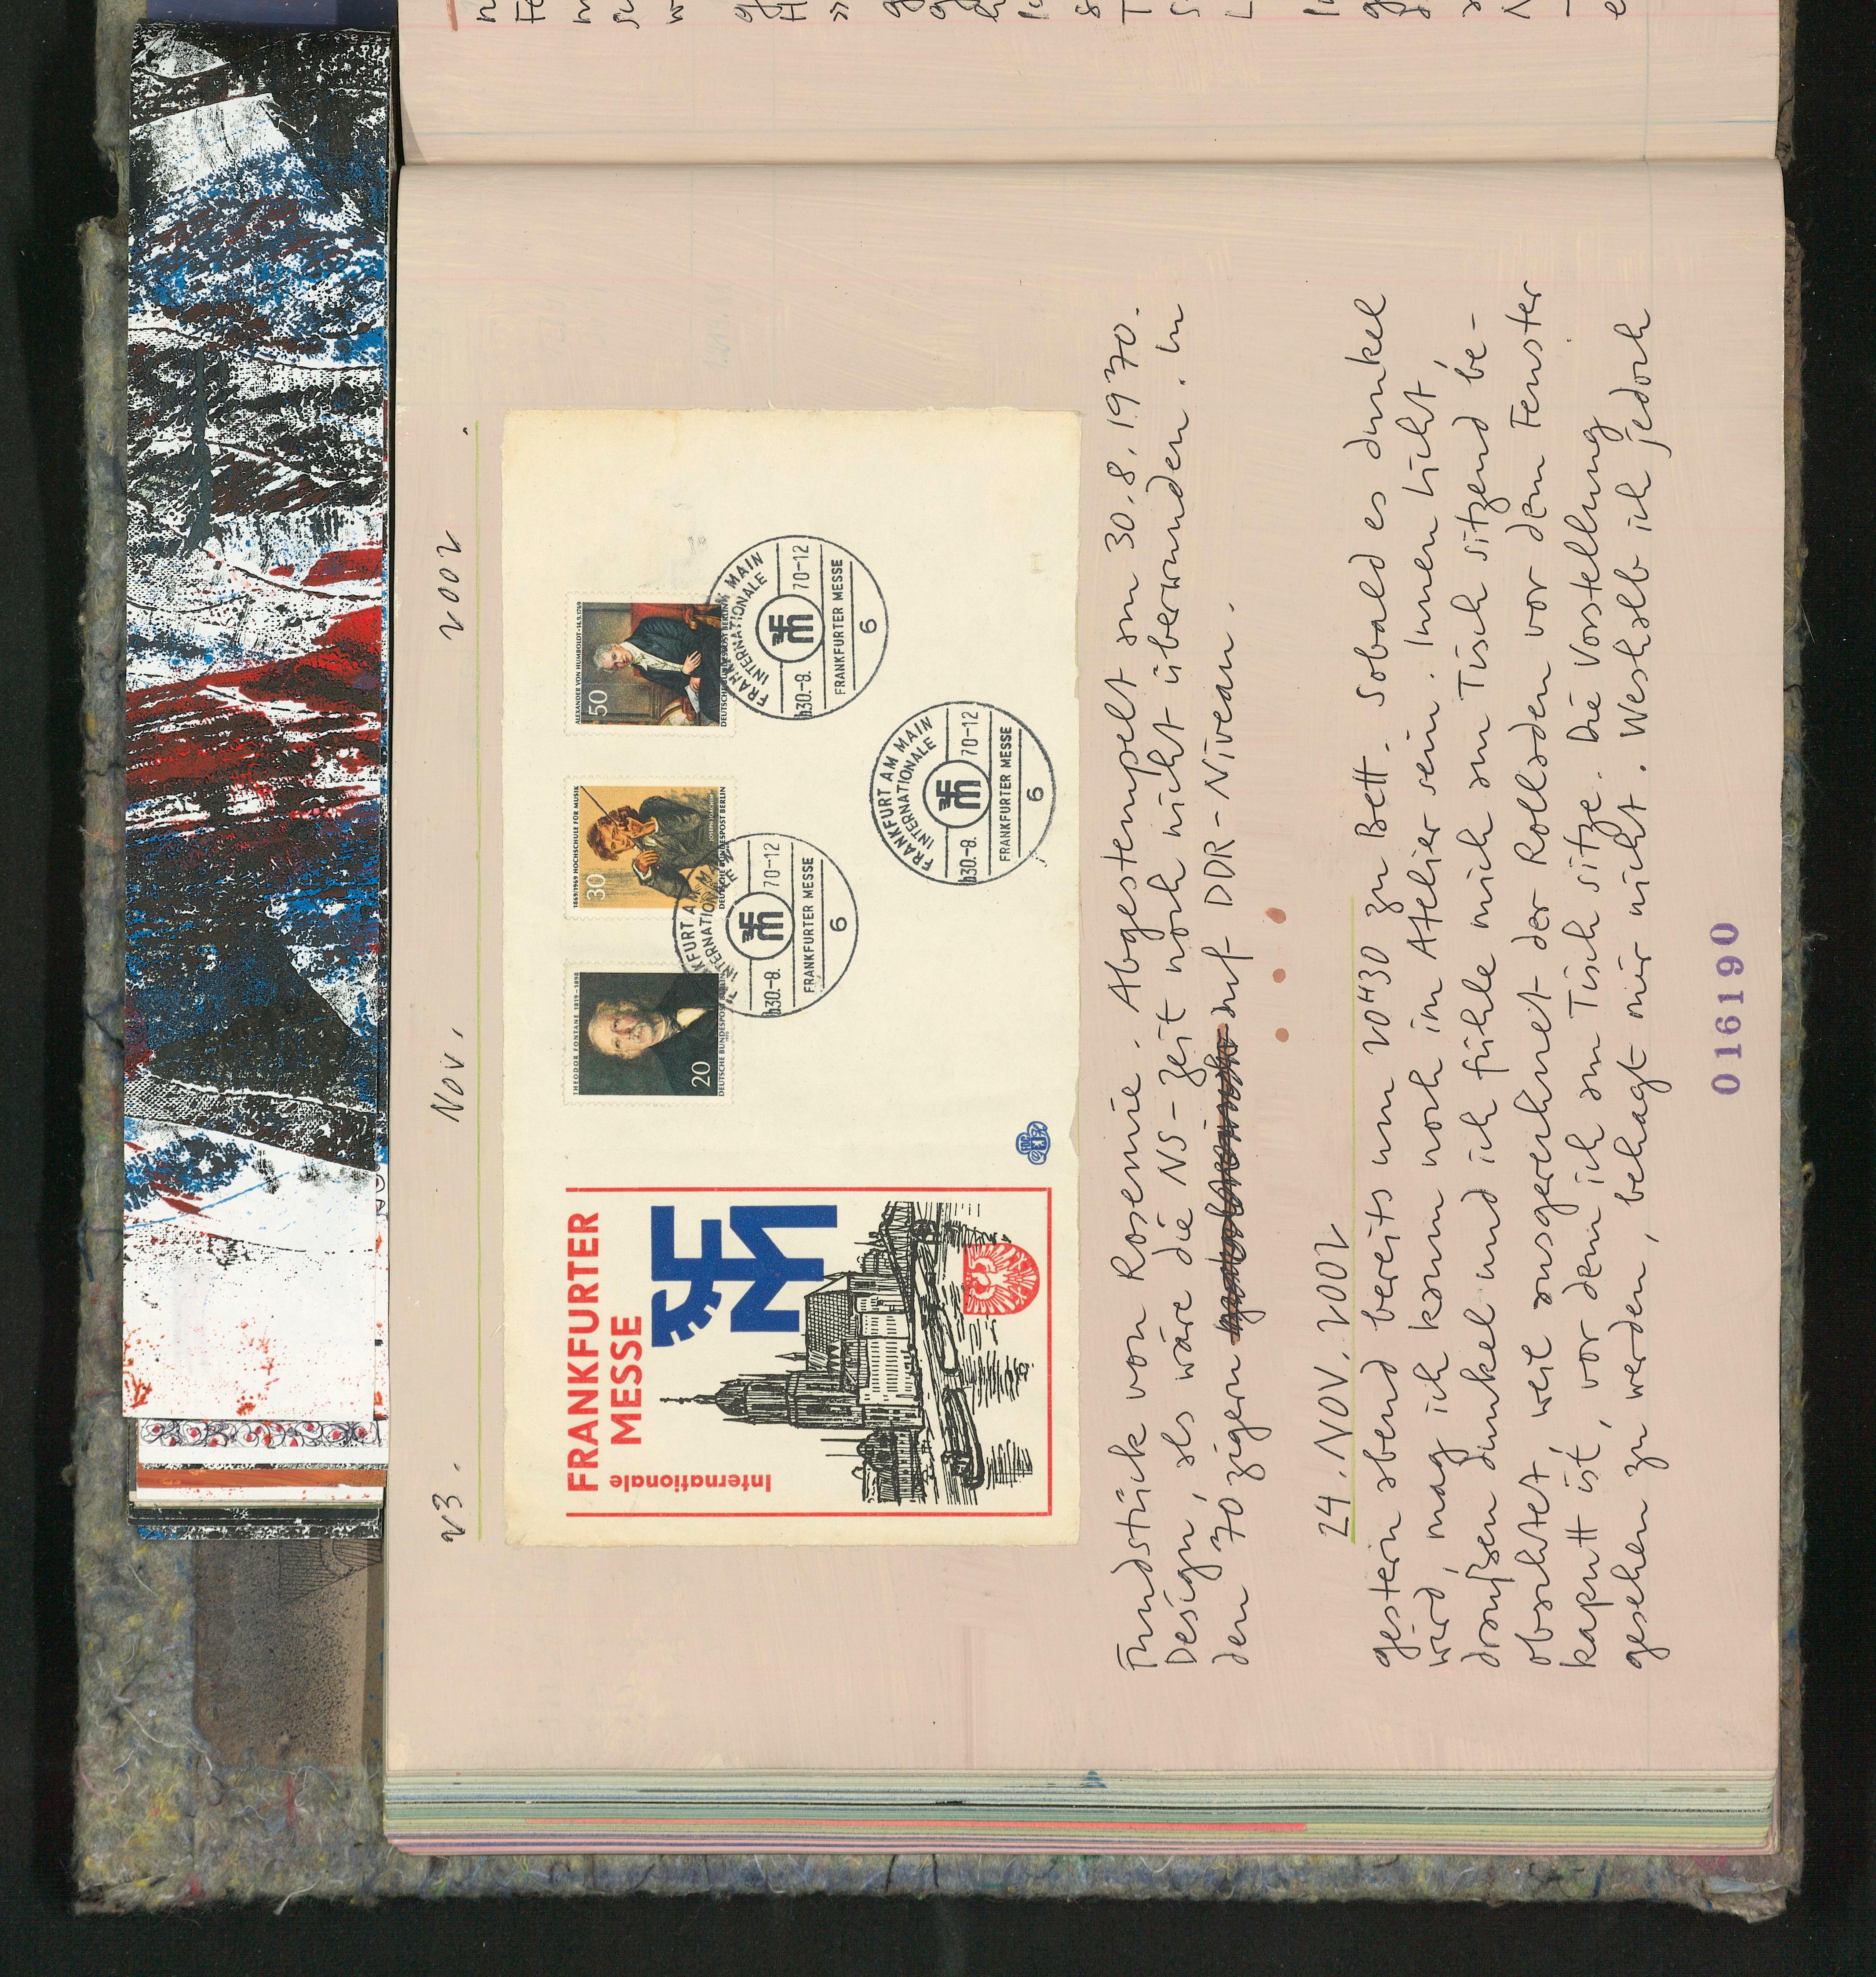 23. Nov. 2002
FRANKFURTER
MESSE
Internationale
THEODOR FONTANE 1819-1898
20
DEUTSCHE BUNDESPOST BERLIN
1869/1969 HOCHSCHULE FÜR MUSIK
30
JOSEPH JOACHIM
DEUTSCHE BUNDESPOST BERLIN
ALEXANDER VON HUMBOLDT · 14.9.1769
50
DEUTSCHE BUNDESPOST BERLIN
FRANKFURT AM MAIN
INTERNATIONALE
b30.-8. 70-12
FRANKFURTER MESSE
6
FRANKFURT AM MAIN
INTERNATIONALE
b30.-8. 70-12
FRANKFURTER MESSE
6
FRANKFURT AM MAIN
INTERNATIONALE
b30.-8. 70-12
FRANKFURTER MESSE
6
Fundstück von Rosemie. Abgestempelt am 30.8.1970.
Design, als wäre die NS-Zeit noch nicht überwunden. In
den 70zigern auf DDR-Niveau.
24. NOV. 2002
gestern abend bereits um 20H30 zu Bett. Sobald es dunkel
wird, mag ich kaum noch im Atelier sein. Innen Licht,
draußen dunkel und ich fühle mich am Tisch sitzend be-
obachtet, weil ausgerechnet der Rolladen vor dem Fenster
kaputt ist, vor dem ich am Tisch sitze. Die Vorstellung
gesehen zu werden, behagt mir nicht. Weshalb ich jedoch
016190